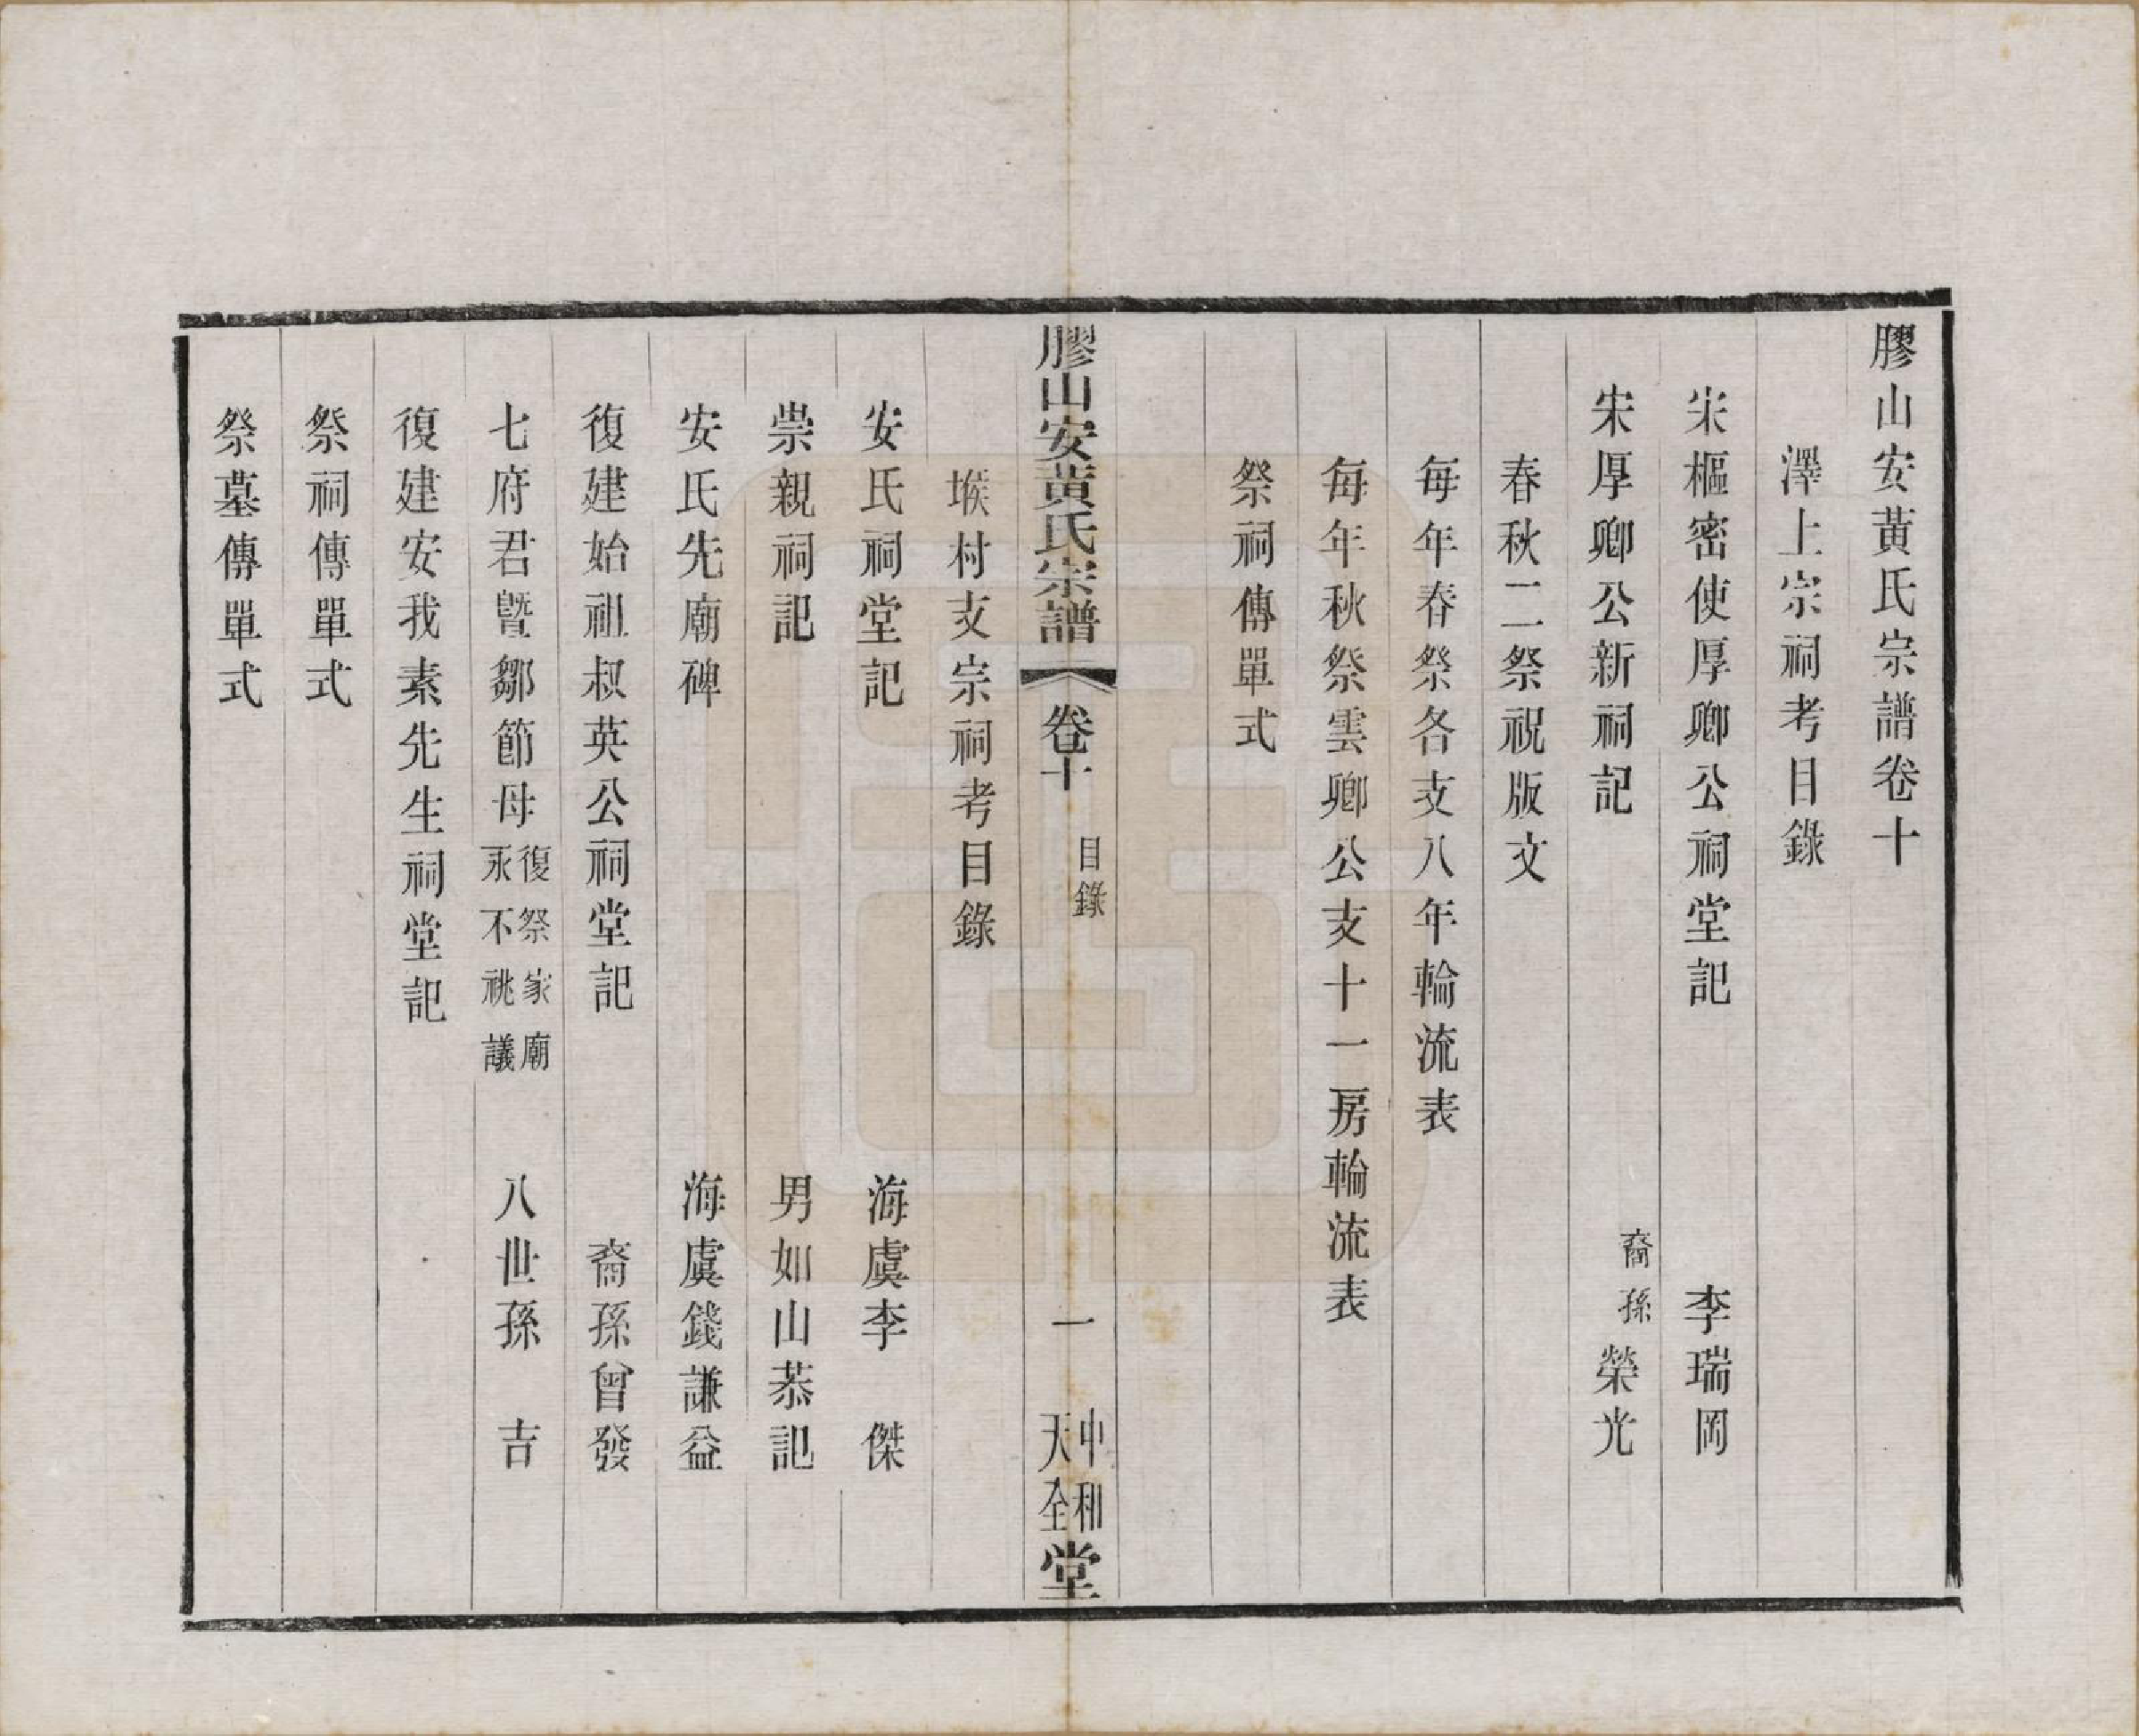 膠山安黃氏宗譜卷十
澤上宗祠考目錄
宋樞密使厚卿公祠堂記 李瑞岡
宋厚卿公新祠記 裔孫榮光
春秋二祭祝版文
每年春祭各支八年輪流表
每年秋祭雲卿公支十一房輪流表
祭祠傳單式
膠山安黃氏宗譜 卷十 目錄 一 中和天全堂
堠村支宗祠考目錄
安氏祠堂記 海虞李 傑
崇親祠記 男如山恭記
安氏先廟碑 海虞錢謙益
復建始祖叔英公祠堂記 裔孫曾發
七府君曁鄒節母復祭家廟永不祧議 八世孫 吉
復建安我素先生祠堂記
祭祠傳單式
祭墓傳單式